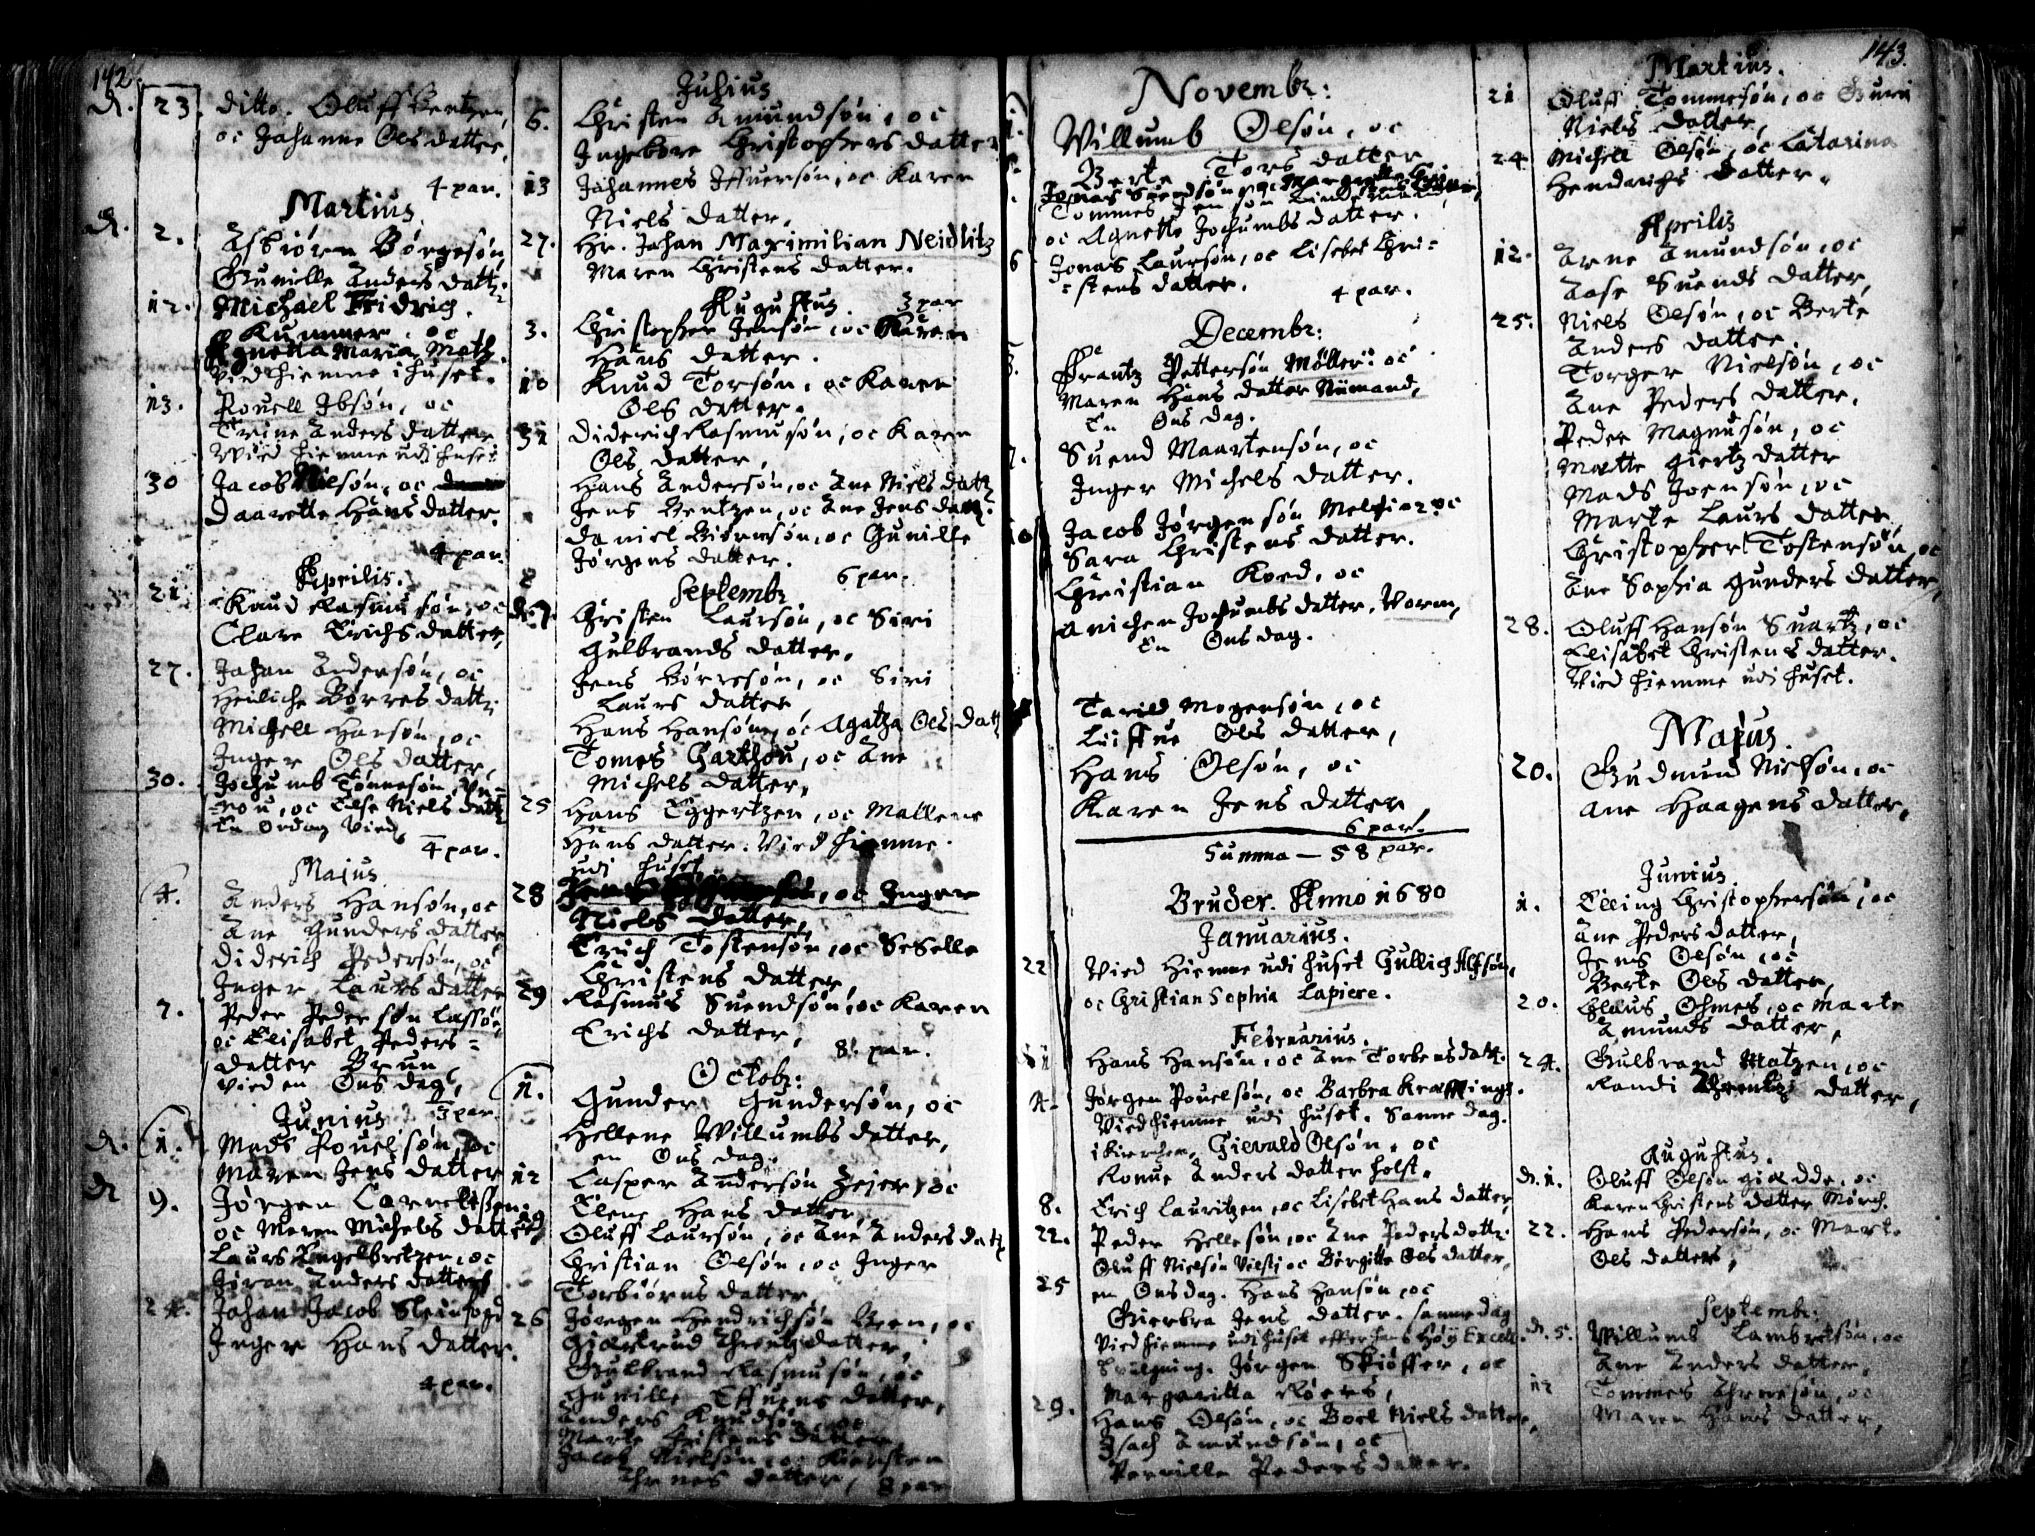 142.
d. 23. ditto. Oluff Bertzen,
oc Johanne Ols datter,
4 par.
Martius.
d. 2. Asbiørn Børgesøn
Gunille Anders datt:
12. Michael Fridrich
Kummer, oc
Agnetta Maria Meth.
Vied hiemme i huset.
13. Pouell Ibsøn, oc
Trine Anders datter
Vied hiemme udi huset
30 Jacob Nilsøn, oc
Daarette Hans datter.
4 par.
Aprilis.
21 Knud Rasmusøn, oc
Clare Erichs datter,
27. Johan Andersøn, oc
Heiliche Børres datt:
Michell Hansøn, oc
Inger Ols datter,
30. Jochumb Tønnesøn,
oc Else Niels datt
En Ordag Vied,
4 par.
Majus
4. Anders Hansøn, oc
Ane Gunders datter
Diderich Pedersøn, oc
Inger Laurs datter
7. Peder Pedersøn Lassøn,
oc Elisabet Peders=
datter Brun
vied en Ons dag,
3 par.
Junius
d. 1. Mads Pouelsøn, oc
Maren Jens datter
d 9. Jørgen Cornelissen
oc Maren Michels datter
Laurs Engelbretzen, oc
Jiran Anders datter
24. Johan Jacob Steinfogd
Inger Hans datter.
4 par.
Julius
6. Christen Amundsøn, oc
Ingebore Christophers datter
13 Johannes Iffuersøn, oc Karen
Niels datter,
27. Hr. Johan Maximilian Neidlitz
Maren Christens datter.
3 par
Augustus.
3. Christopher Jensøn, oc Karen
Hans datter.
10 Knud Torsøn, oc Karen
Ols datter.
31 Diderich Rasmusøn, oc Karen
Ols datter,
Hans Andersøn, oc Ane Niels datt
Jens Bentzen, oc Ane Jens datt:
Daniel Biørnsøn, oc Gunille
Jørgens datter.
6 par.
Septembr
d. 7. Christen Laursøn, oc Siri
Gulbrands datter,
Jens Børresøn, oc Siri
Laurs datter,
Hans Hansøn, oc Agatha Ols datt
Tomes Garthon, oc Ane
Michels datter,
25 Hans Eggertzen, oc Mallene
Hans datter. Vied hiemme
udi huset
28 oc Inger
Niels datter,
Erich Tostensøn, oc Seselle
Christens datter,
29 Rasmus Suendsøn, oc Karen
Erichs datter,
8 par.
Octobr:
1. Gunder Gundersøn, oc
Hellene Willumbs datter,
en Ons dag.
12 Casper Andersøn Zejer, oc
Elene Hans datter
19 Oluff Laursøn, oc Ane Anders datt
Christian Olsøn, oc Inger
Torbiørns datter,
26 Jørgen Hendrichsøn Been, oc
Giertrud Christens datter,
Gulbrand Rasmusøn, oc
Gunille Effuens datter,
Anders Knudsøn, oc
Marte Christens datter
Jacob Nielsøn, oc Kiersten
Arnes datter, 8 par
Novembr:
Willumb Olsøn, oc
Berte Tors datter
Jonas Suendsøn, oc
Tommes Jensøn Lindemand,
oc Agnette Jochumbs datter.
6 Jonas Laursøn, oc Lisebet Chri=
=stens datter.
4 par.
Decembr:
3. Frantz Pettersøn Møller oc
Maren Hans datter Niimand,
En Ons dag.
7. Suend Maartensøn, oc
Inger Michels datter.
10 Jacob Jørgensøn Melchior oc
Sara Christens datter.
Christian Koed, oc
Anichen Jochumbs datter, Worm,
En Ons dag.
Tarild Mogensøn, oc
Liffue Ols datter,
Hans Olsøn, oc
Karen Jens datter,
6 par.
Summa — 58 par.
Bruder. Anno 1680
Januarius.
22 Vied Hiemme udi huset Gullich Alfsøn,
oc Christian Sophia Lapiere.
Februarius.
Hans Hansøn, oc Ane Torbens datt.
4. Jørgen Pouelsøn, oc Barbra Kræftings.
Vied hiemme udi huset. Samme dag.
i kirchen, Gievald Olsøn, oc
Ronue Anders datter Holst.
8. Erich Lauritzen, oc Lisebet Hans datter,
22. Peder Hellesøn, oc Ane Peders datt:
Oluff Nielsøn Vilsti oc Børgitte Ols datter,
25 en Ons dag. Hans Hansøn, oc
Gierbra Jens datter. samme dag
Vied hiemme udi huset effter hans Høy Excell.
Jørgen Skiøffer, oc
Margaritta Røers,
29. Hans Olsøn, oc Boel Niels datter,
Isach Amundsøn, oc
Pernille Peders datter.
143.
Martius.
21 Oluff Tommesøn, oc Guri
Niels datter,
24 Michell Olsøn, oc Catarina
Hendrichs datter.
Aprilis
12. Arne Amundsøn, oc
Aase Suends datter,
25. Niels Olsøn, oc Berte
Anders datter.
Torger Nielsøn, oc
Ane Peders datter.
Peder Magnusøn, oc
Mætte Giertz datter
Mads Joensøn, oc
Marte Laurs datter,
Christopher Tostensøn, oc
Ane Sophia Gunders datter,
28. Oluff Hansøn Suartz, oc
Elisabet Christens datter.
Vied hiemme udi huset.
Majus.
20. Gudmund Nielsøn, oc
Ane Haagens datter,
Junius.
1. Elling Christophersøn, oc
Ane Peders datter,
Jens Olsøn, oc
Berte Ols datter,
20. Claus Ohmes, oc Marte
Amunds datter,
24. Gulbrand Matzen, oc
Randi datter,
Augustus.
d. 1. Oluff Olsøn Giædde, oc
Karen Christens datter Mørch.
22. Hans Pedersøn, oc Marte
Ols datter,
Septembr:
d. 5. Willumb Lambretsøn, oc
Ane Anders datter,
12 Tommes Arnesøn, oc
Maren Hans datter,